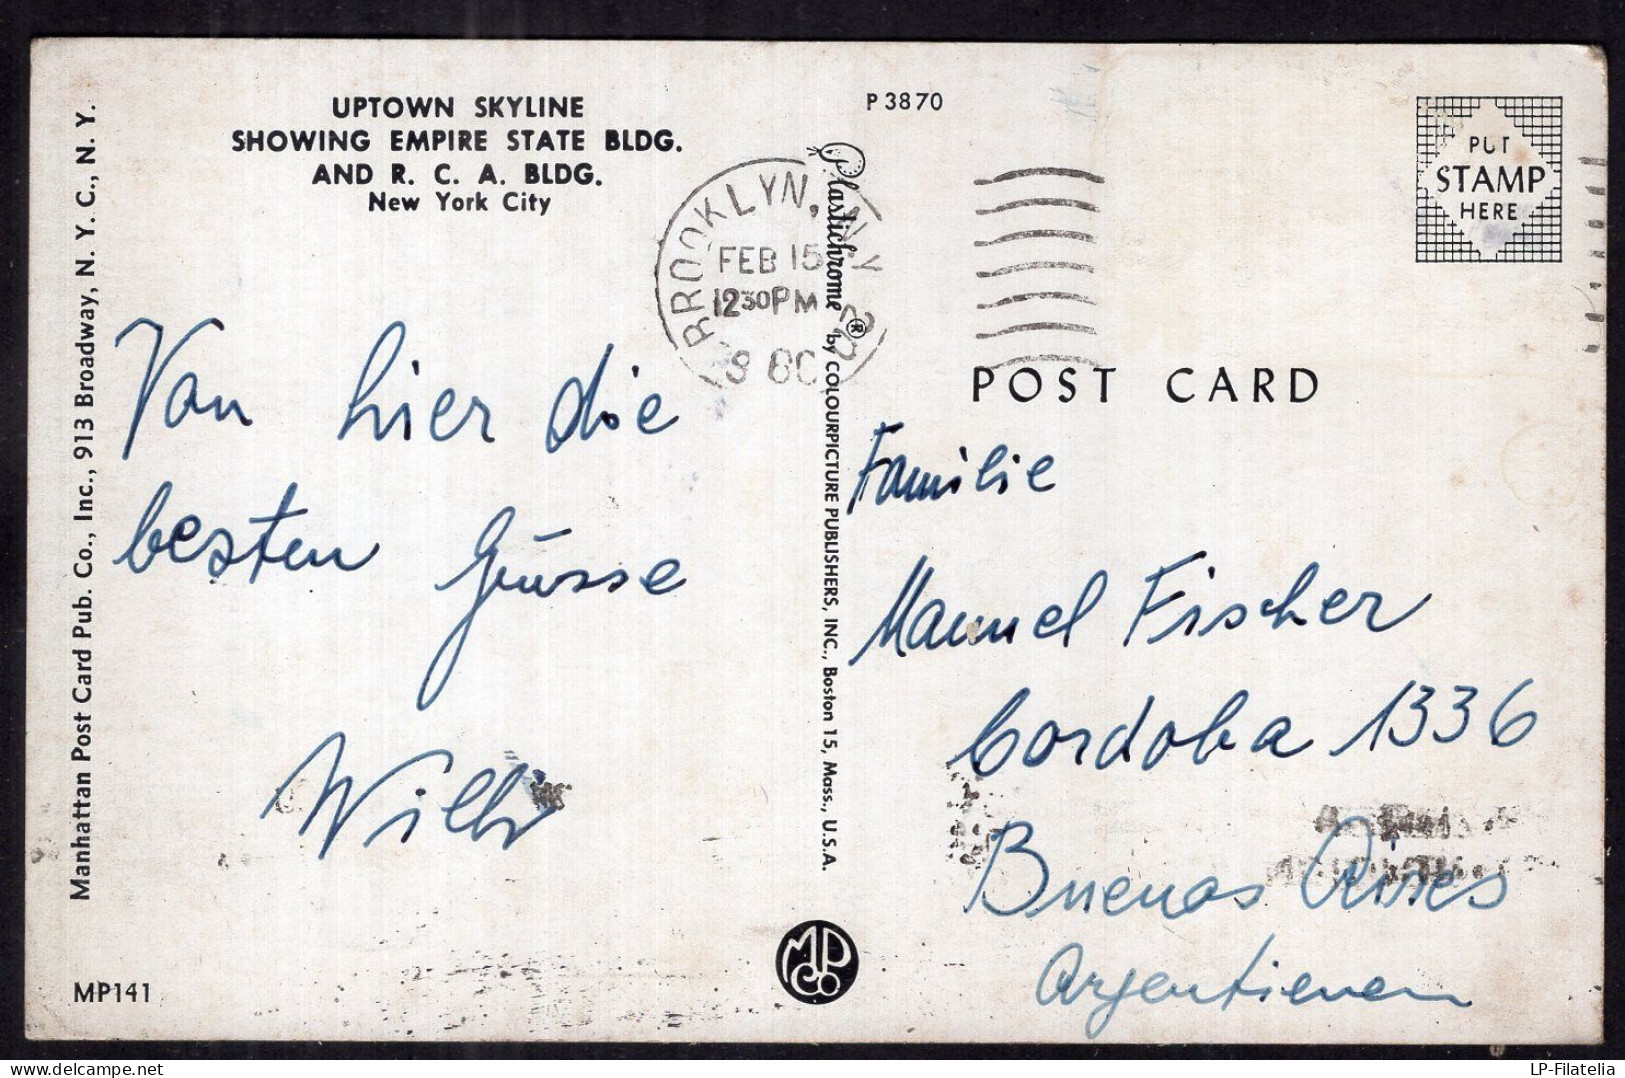 UPTOWN SKYLINE
SHOWING EMPIRE STATE BLDG.
AND R. C. A. BLDG.
New York City
P 3870
PUT
STAMP
HERE
BROOKLYN, N.Y.
FEB 15
12 30 PM
Manhattan Post Card Pub. Co., Inc., 913 Broadway, N. Y. C., N. Y.
Plastichrome ® by COLOURPICTURE PUBLISHERS, INC., Boston 15, Mass., U.S.A.
POST CARD
Von hier die
besten Grüsse
Willy
Familie
Manuel Fischer
Cordoba 1336
Buenos Aires
Argentienen
MP141
MP
Co
LP-Filatelia